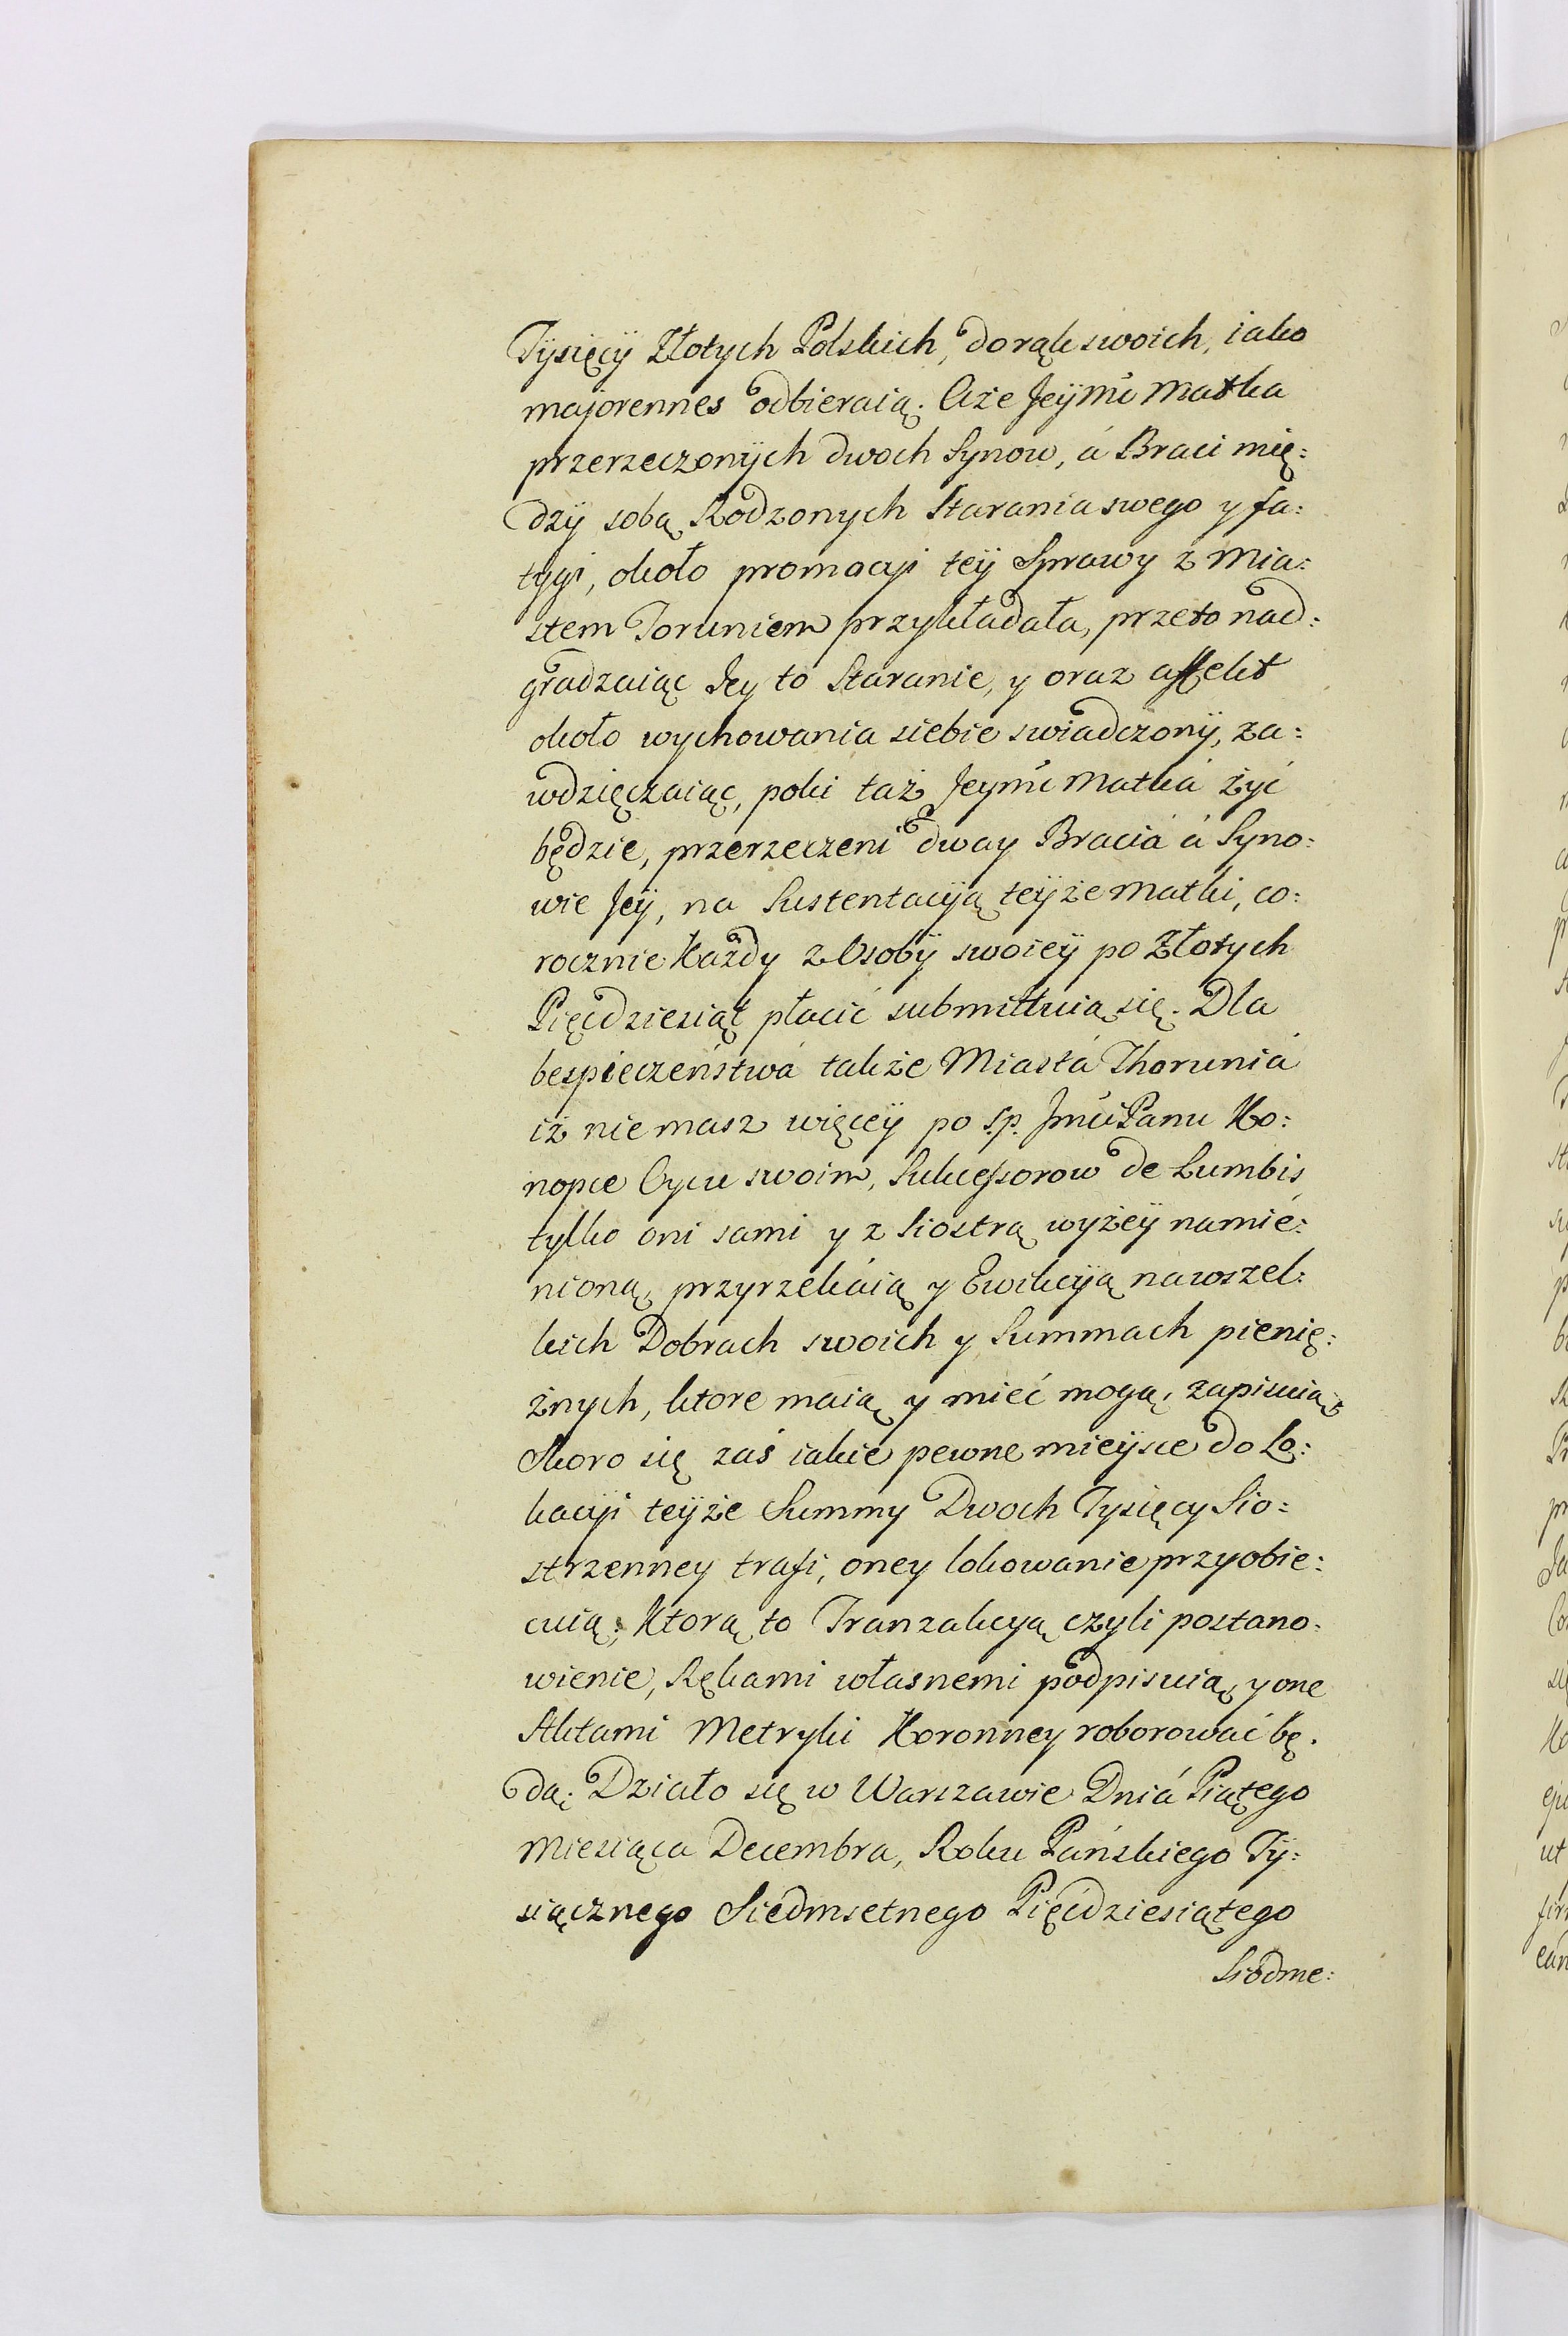 Tysięcÿ Złotych Polskich, do rąk swoich, iako
majorennes odbieraią. Aże Jeÿmć Matka
przerzeczonÿch dwoch Synow, á Braci mię:
dzÿ sobą Rodzonych Starania swego y fa:
tygi, około promocyi teÿ Sprawy z Mia:
stem Toruniem przykładała, przeto nad:
gradzaiąc Jey to Staranie, y oraz affekt
około wychowania siebie swiadczonÿ, za:
wdzięczaiąc, poki taż Jeymć Matká żyć
będzie, przerzeczeni dway Braciá á Syno:
wie Jeÿ, na Sustentacyią teÿże Matki, co:
rocznie Każdy z Osobÿ swoieÿ po Złotych
Pięćdziesiąt płacić submittuią się. Dla
bespieczeństwá także Miastá Thoruniá
iż nie masz więceÿ po s.p. Jmći Panu Ko:
nopce Oycu swoim, Sukcessorow de Lumbis
tylko oni sami y z Siostrą wyżeÿ namie:
nioną, przyrzekáią y Ewikcyią na wszel:
kich Dobrach swoich y Summach pienię:
żnych, ktore maią y mieć mogą, zapisuią
Skoro się zaś iakie pewne mieÿsce do Lo:
kacyi teÿże Summy Dwoch Tysięcy Sio:
strzenney trafi, oney lokowanie przyobie:
cuią; Ktorą to Tranzakcyą czyli postano:
wienie, Rękami własnemi podpisuią y one
Aktami Metryki Koronney roborować bę:
dą. Działo się w Warszawie Dniá Piątego
Miesiąca Decembra, Roku Pańskiego Tÿ:
siącznego Siedmsetnego Pięćdziesiątego
Siodme: